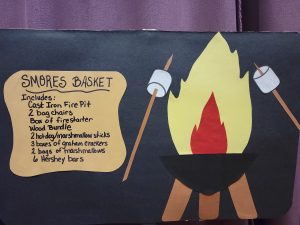 SMORES BASKET
Includes:
Cast Iron Fire Pit
2 bag chairs
Box of firestarter
Wood Bundle
2 hotdog/marshmallow sticks
3 boxes of graham crackers
2 bags of marshmallows
6 Hershey bars